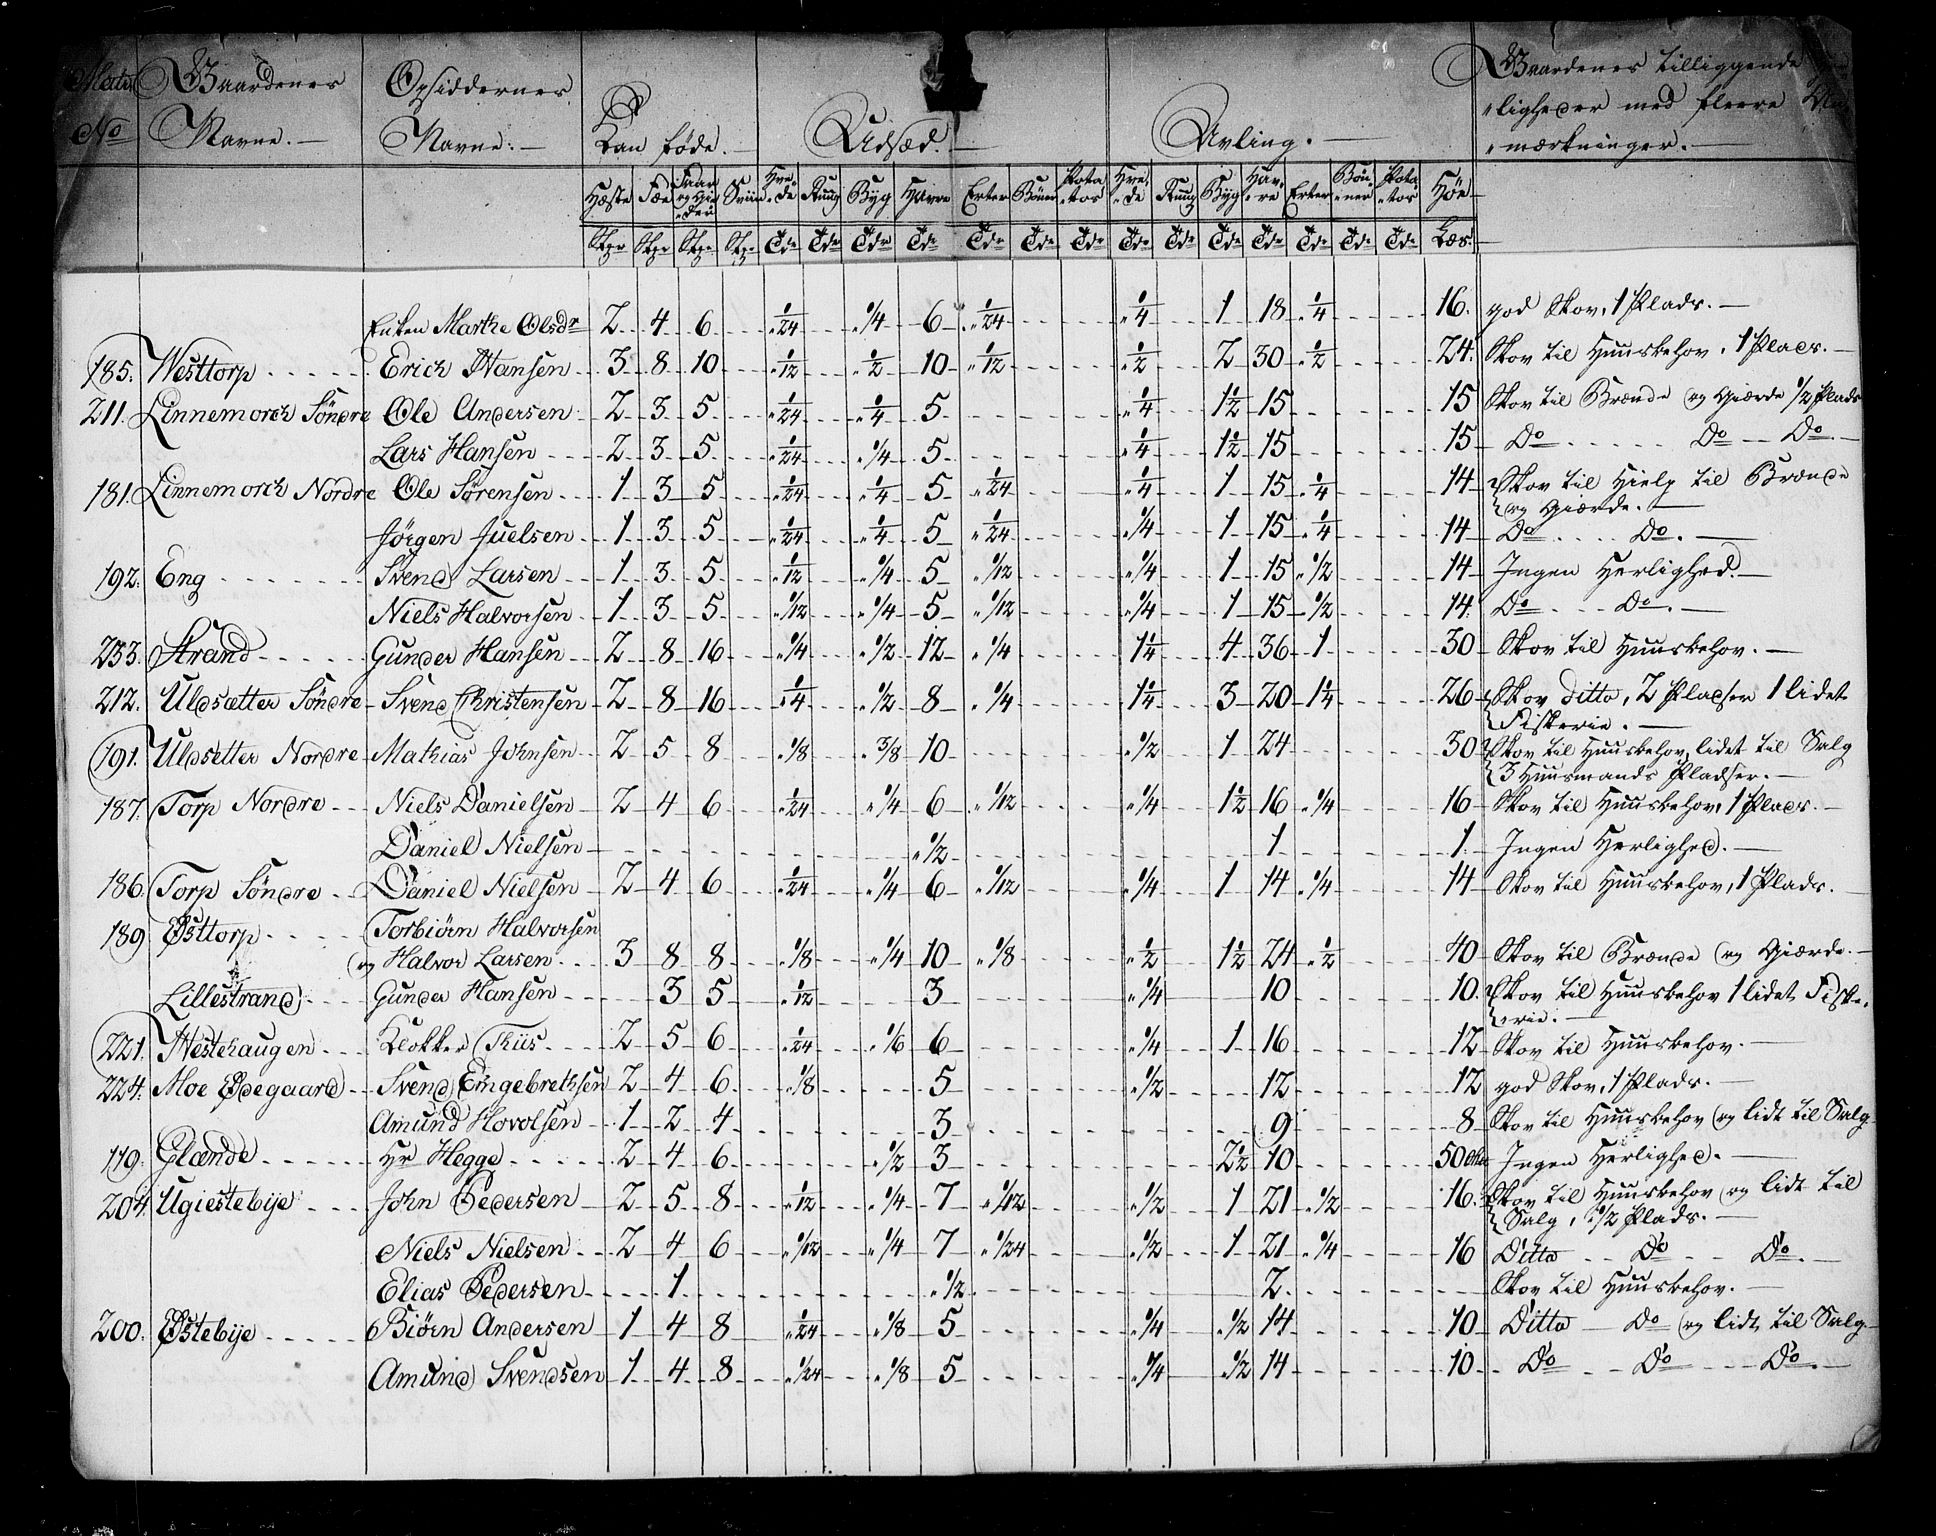 Matr. Gaardenes Opsiddernes Gaardenes tilliggende
No Navne. Navne. Kan føde. Udsæd. Avling. ligheder med fleere An
mærkninger.
Hæste Fæe Faar og Gie der Sviin Hvede Ruug Byg Havre Erter Bøner Potatos Hvede Ruug Byg Havre Erter Bønner Potatos Høe
Stkr Stkr Stkr Stkr Tdr Tdr Tdr Tdr Tdr Tdr Tdr Tdr Tdr Tdr Tdr Tdr Tdr Tdr Læs.
Enken Marthe Olsdr 2 4 6 1/24 1/4 6 1/24 1/4 1 18 1/4 16. god Skov, 1 Plads.
185. Westtorp Erich Hansen 3 8 10 1/12 1/2 10 1/12 1/2 2 30 1/2 24. Skov til Huusbehov, 1 Plads.
211. Linnemorch Søndre Ole Andersen 2 3 5 1/24 1/4 5 1/4 1 1/2 15 15 Skov til Brænde og Gierde 1/2 Plads
Lars Hansen 2 3 5 1/24 1/4 5 1/4 1 1/2 15 15 Do Do Do
181. Linnemorch Nordre Ole Sørensen 1 3 5 1/24 1/4 5 1/24 1/4 1 15 1/4 14 Skov til Hielp til Brænde
og Gierde.
Jørgen Juelsen 1 3 5 1/24 1/4 5 1/24 1/4 1 15 1/4 14 Do Do.
192. Eng Svend Larsen 1 3 5 1/12 1/4 5 1/12 1/4 1 15 1/2 14 Ingen Herlighed.
Niels Halvorsen 1 3 5 1/12 1/4 5 1/12 1/4 1 15 1/2 14. Do Do.
233. Strand Gunder Hansen 2 8 16 1/4 1/2 12 1/4 1 1/4 4 36 1 30 Skov til Huusbehov.
212. Uldsætter Søndre Svend Christensen 2 8 16 1/4 1/2 8 1/4 1 1/4 3 20 1 1/4 26 Skov ditto, 2 Pladser 1 lidet
Fiskerie.
191. Uldsetter Nordre Mathias Johnsen 2 5 8 1/8 3/8 10 1/2 1 24 30 Skov til Huusbehov, lidet til Salg
3 Huusmands Pladser.
187. Torp Nordre Niels Danielsen 2 4 6 1/24 1/4 6 1/12 1/4 1 1/2 16 1/4 16 Skov til Huusbehov, 1 Plads.
Daniel Nielsen 1/2 1 1. Ingen Herlighed.
186. Torp Søndre Daniel Nielsen 2 4 6 1/24 1/4 6 1/12 1/4 1 14 1/4 14 Skov til Huusbehov, 1 Plads.
189 Østtorp Torbiørn Halvorsen
og Halvor Larsen 3 8 8 1/8 1/4 10 1/8 1/2 1 1/2 24 1/2 40 Skov til Brænde og Gierde.
Lillestrand Gunder Hansen 3 5 1/12 3 1/4 10 10. Skov til Huusbehov 1 lidet Fiske
erie.
221. Westehaugen Klokker Thiis 2 5 6 1/24 1/6 6 1/4 1 16 12 Skov til Huusbehov.
224. Moe Ødegaard Svend Engebrethsen 2 4 6 1/8 5 1/2 12 12 god Skov, 1 Plads.
Amund Hovolsen 1 2 4 3 9 8 Skov til Huusbehov og lidt til Salg
119. Glænde Hr Hegge 2 4 6 1/2 3 2 1/2 10 50 Ingen Herlighed.
204. Ugiestebye John Pedersen 2 5 8 1/12 1/4 7 1/12 1/2 1 21 1/2 16. Skov til Huusbehov og lidt til
Salg, 1/2 Plads.
Niels Nielsen 2 4 6 1/12 1/4 7 1/24 1/2 1 21 1/4 16 Ditto Do Do.
Elias Pedersen 1 1/2 2 Skov til Huusbehov.
200. Østebye Biørn Andersen 1 4 8 1/24 1/8 5 1/4 1/2 14 10 Ditto Do og lidt til Salg
Amund Svendsen 1 4 8 1/24 1/8 5 1/4 1/2 14 10 Do Do Do.